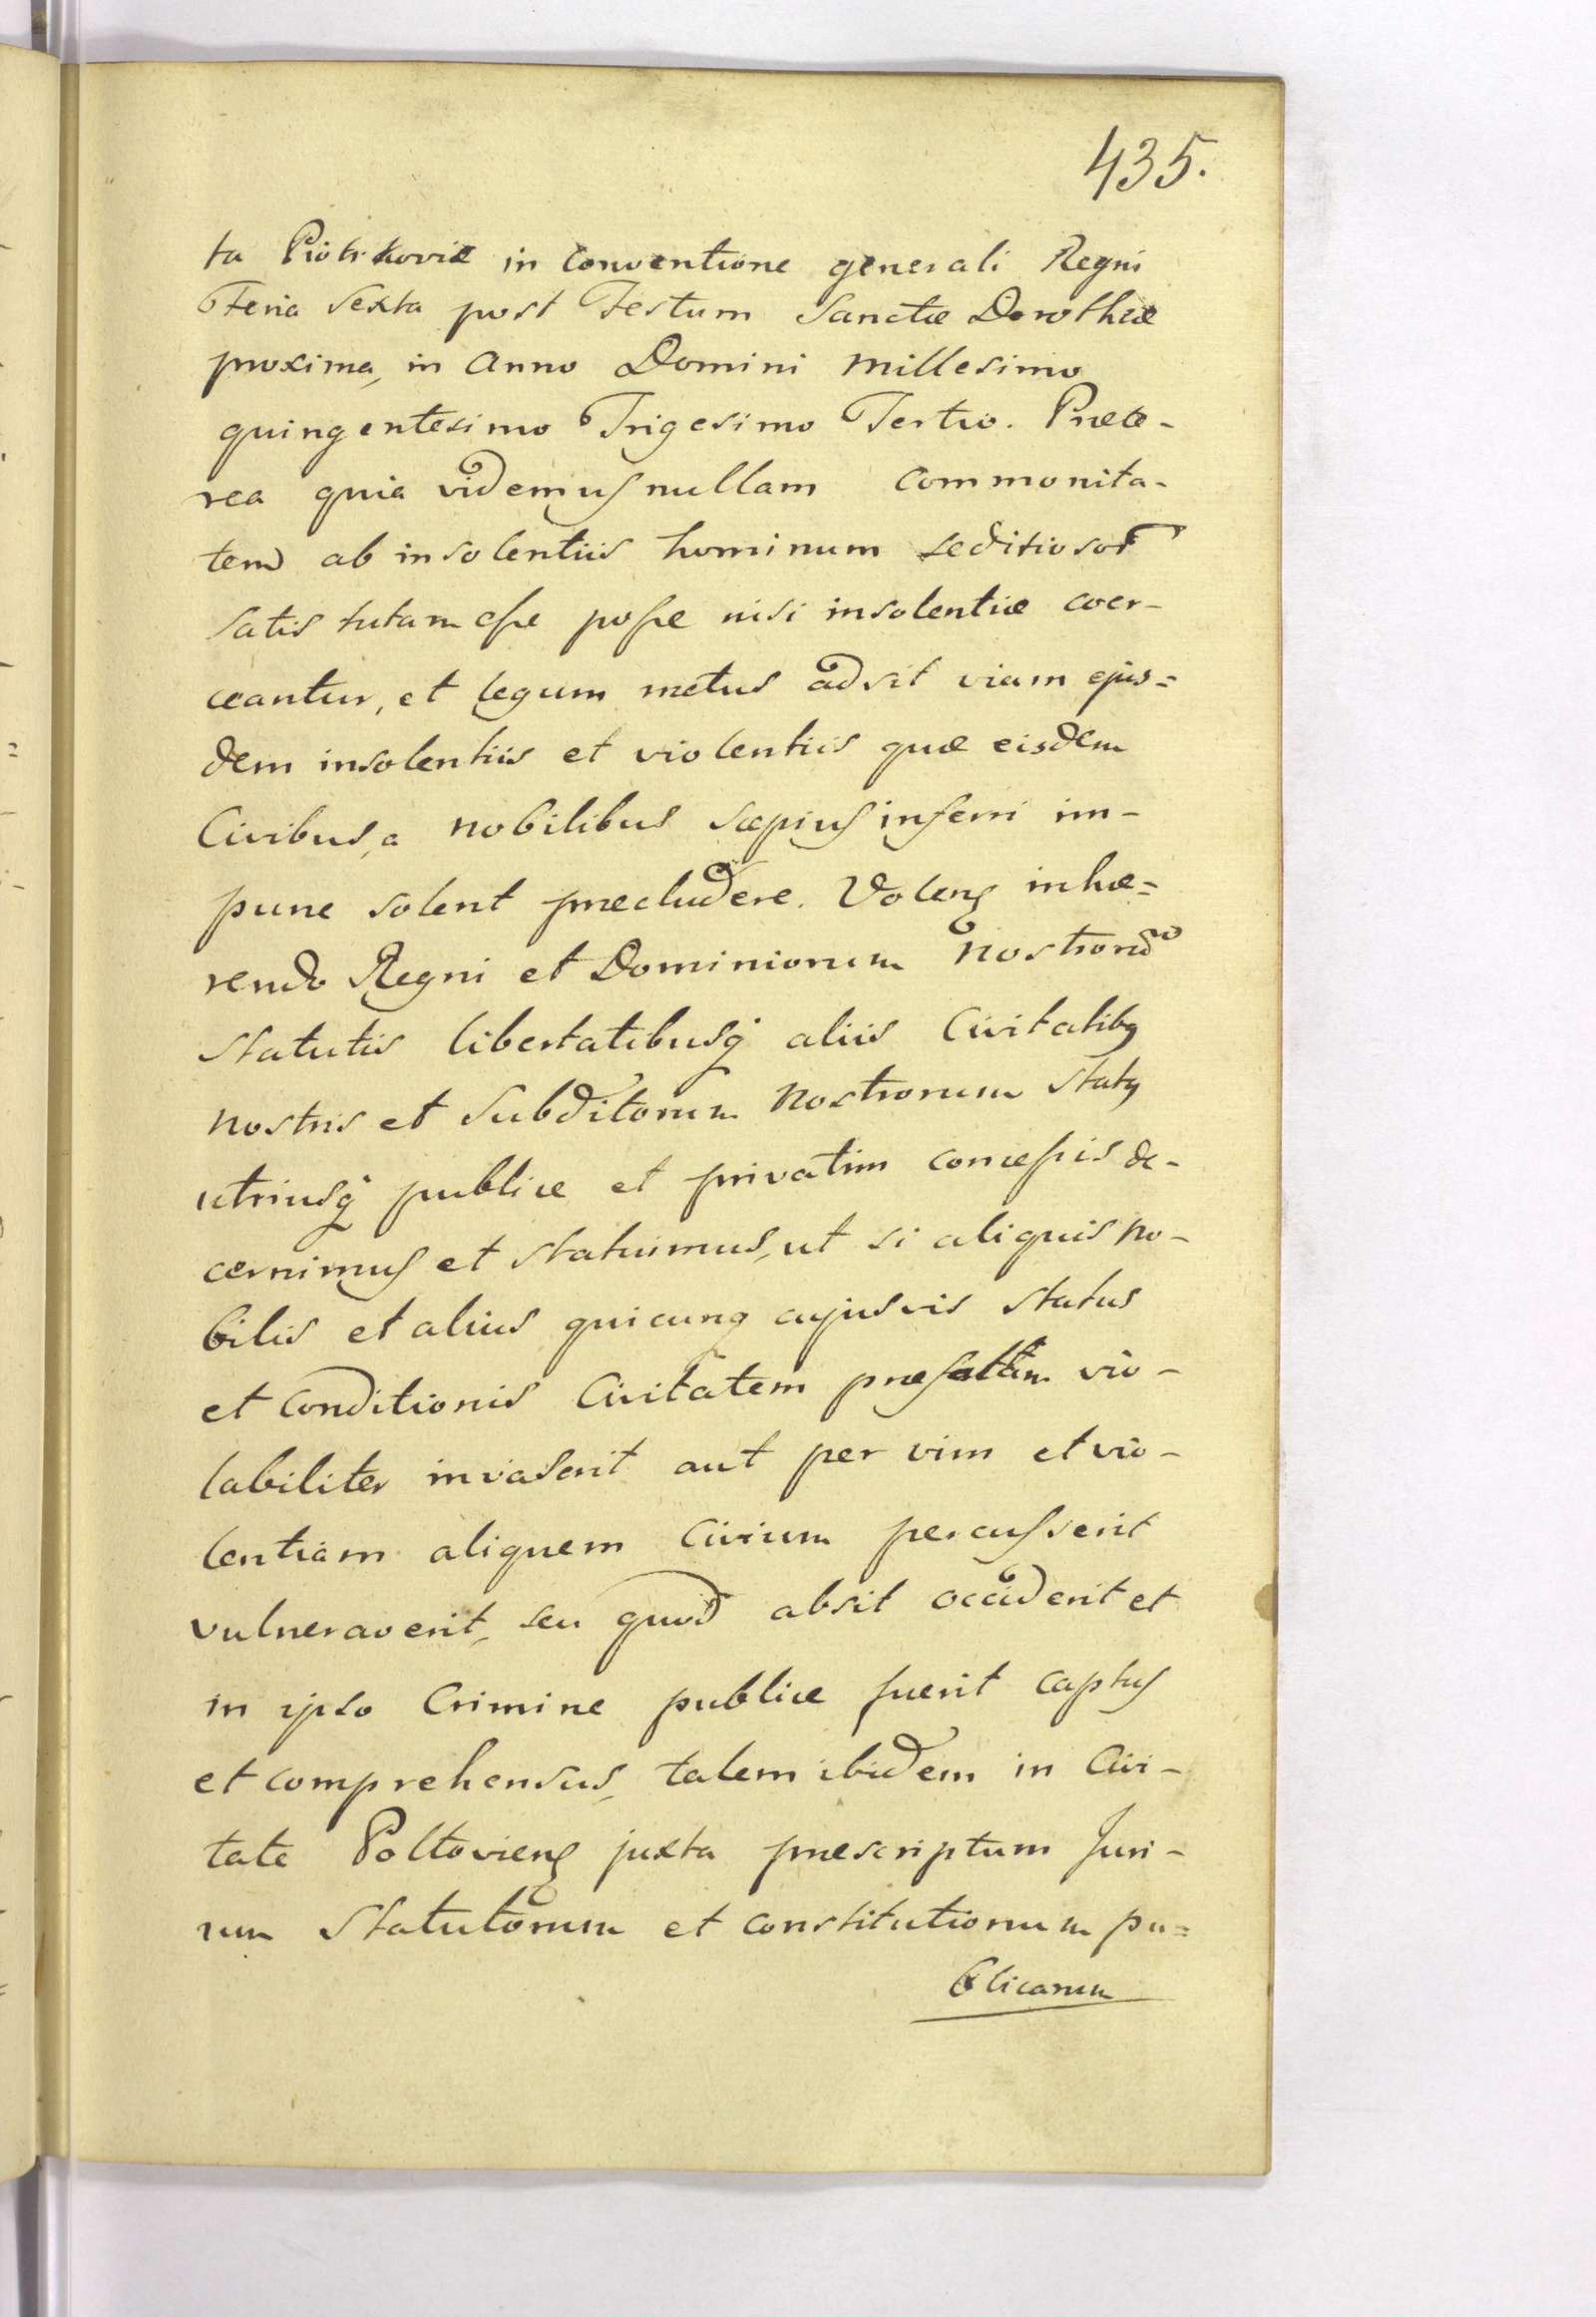 435.
ta Piotrkoviæ in Conventione generali Regni
Feria sexta post Festum Sanctæ Dorotheæ
proxima, in Anno Domini Millesimo
quingentesimo Trigesimo Tertio. Præte-
rea quia videmus nullam commonita-
tem ab insolentiis hominum seditiosor
satis tutam esse posse nisi insolentiæ coer-
ceantur, et legum metus adsit viam ejus=
dem insolentiis et violentiis quæ eisdem
Civibus, a nobilibus sæpius inferri im-
pune solent præcludere. Volens inhæ=
rendo Regni et Dominiorum Nostror
statutis libertatibusq aliis Civitatibus
nostris et Subditorum Nostrorum status
utriusq publice et privatim concessis de-
cernimus et statuimus, ut si aliquis no-
bilis et alius quicunq cujusvis status
et Conditionis Civitatem præfatam vio-
labiliter invaserit aut per vim et vio-
lentiam aliquem Civium percusserit
vulneraverit, seu quod absit occiderit et
in ipso Crimine publice fuerit captus
et comprehensus, talem ibidem in Civi-
tate Poltoviens juxta præscriptum Juri-
um Statutorum et constitutionum pu=
blicarum